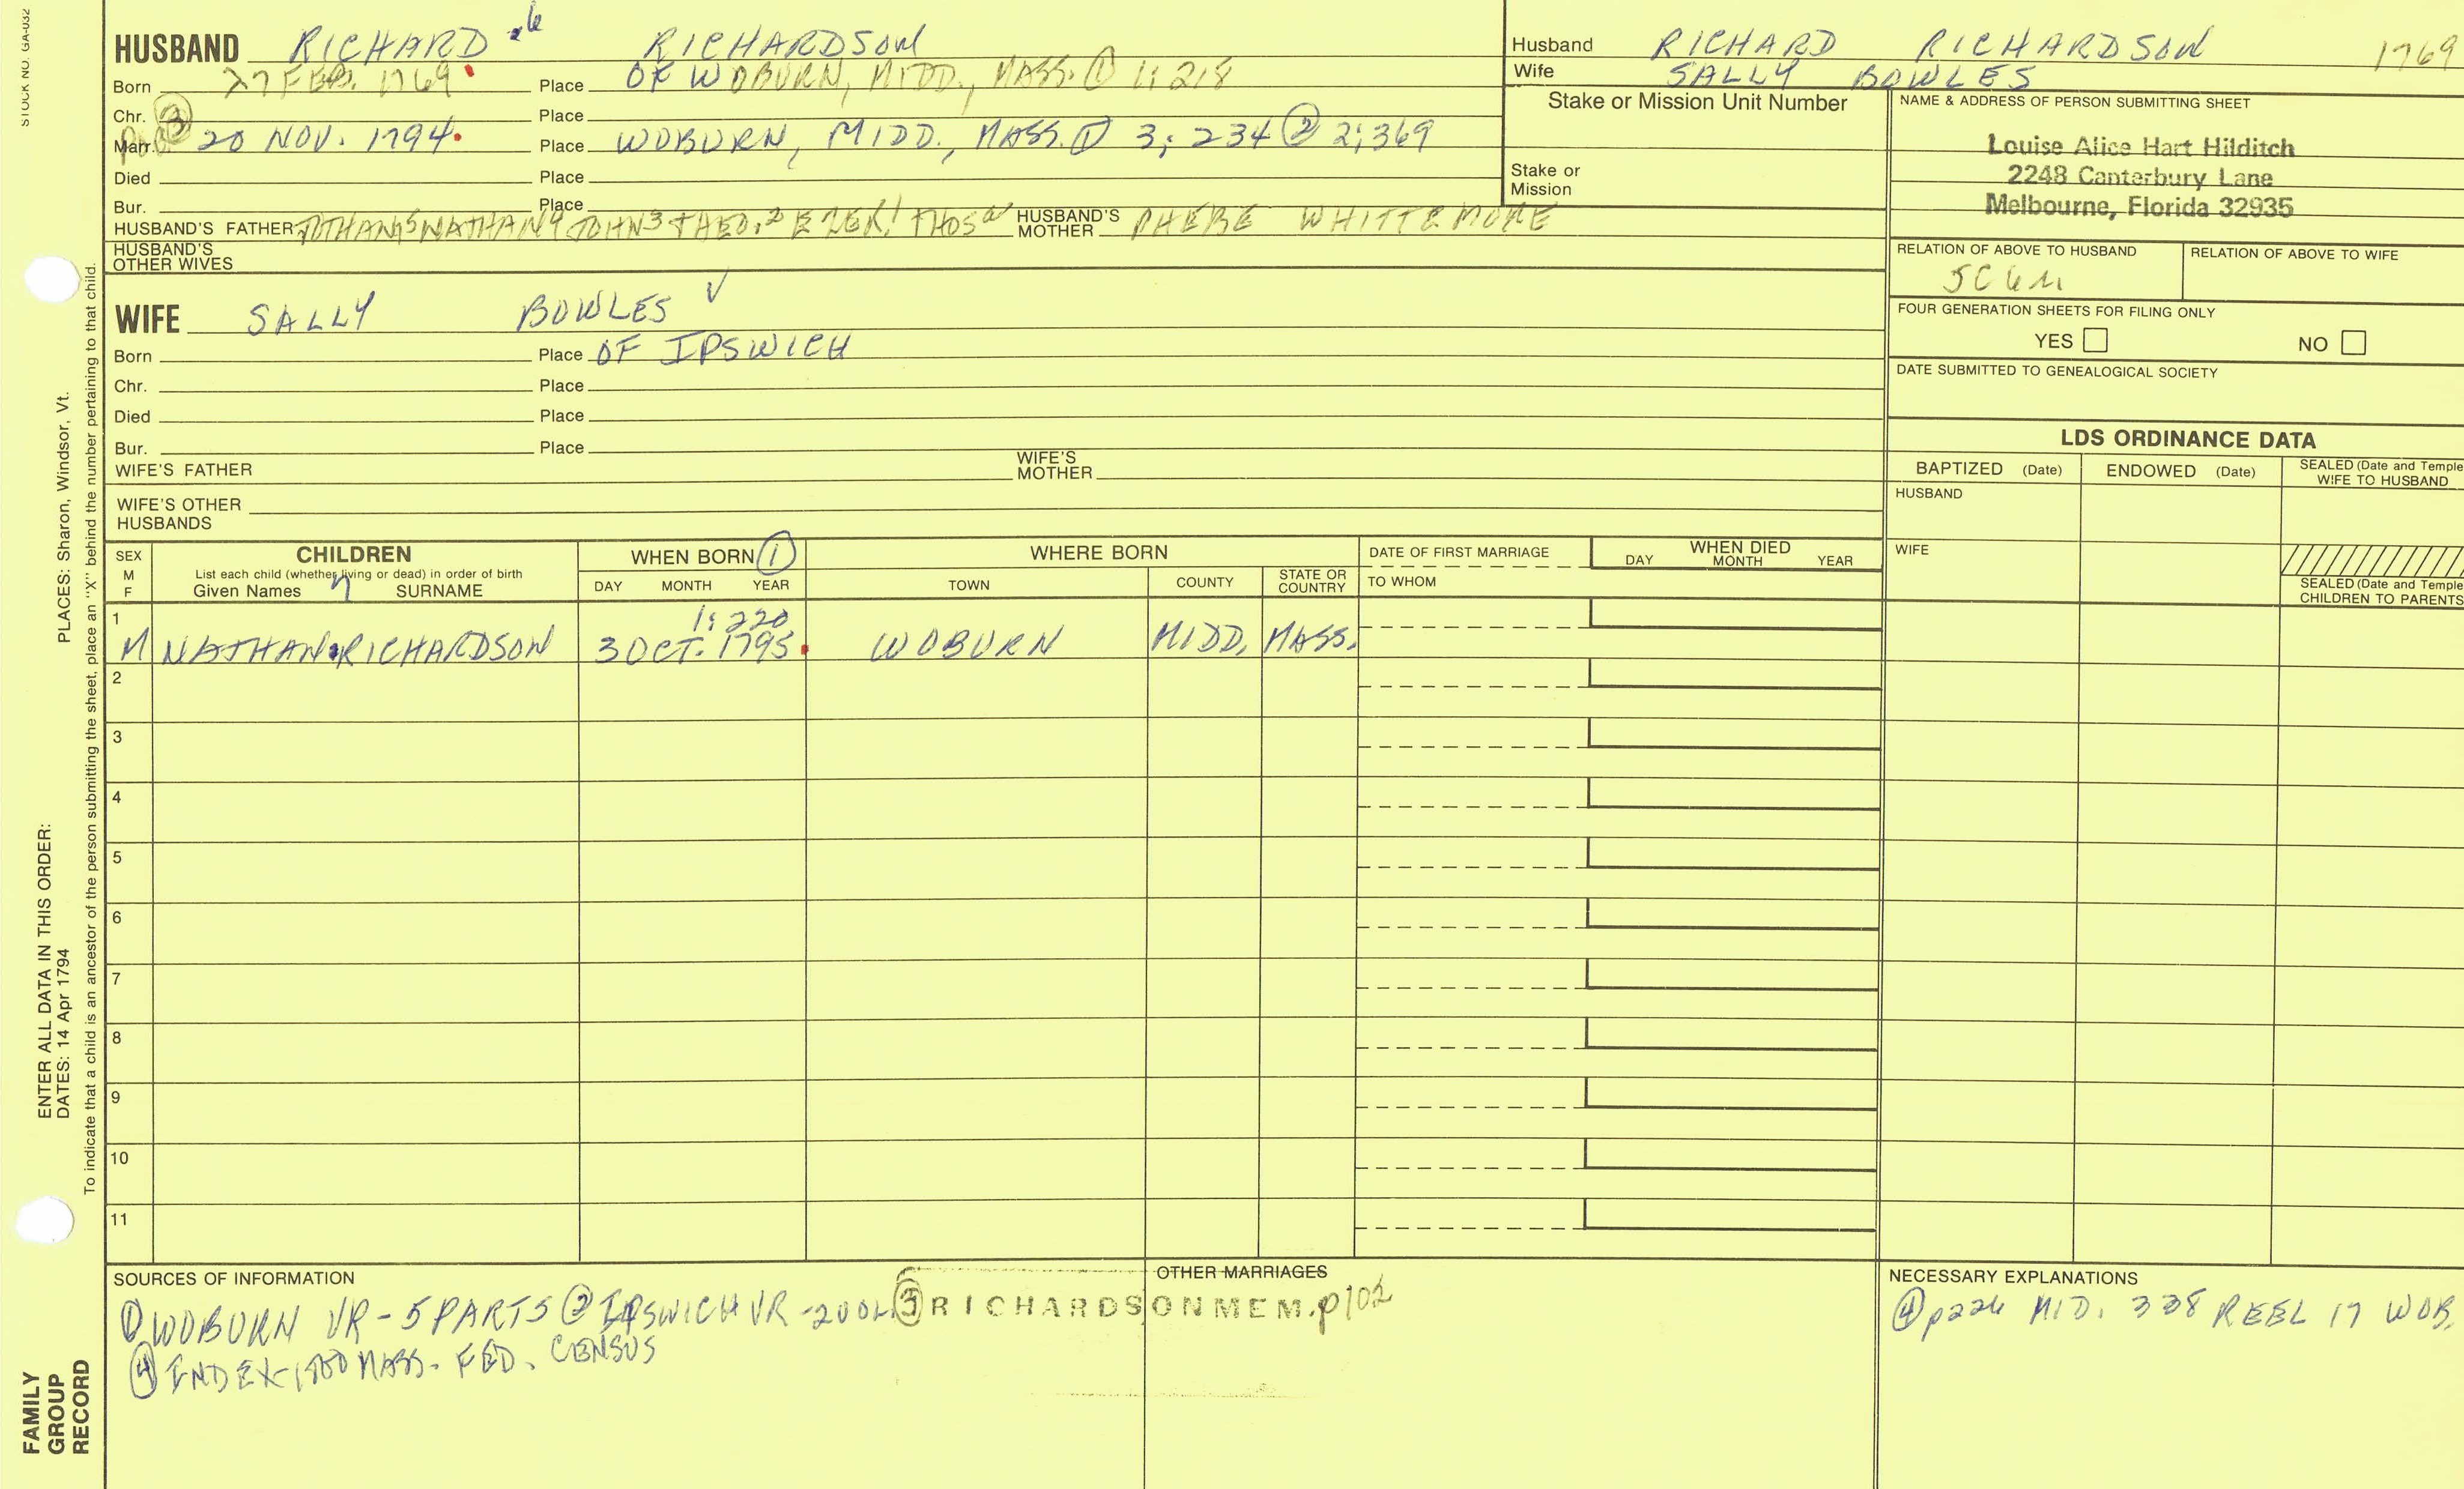 STOCK NO. GA-032
HUSBAND RICHARD 6 RICHARDSON
Born 27 FEB. 1769 Place OF WOBURN, MIDD., MASS. ① 1; 218
Chr. ③ Place
Marr. 20 NOV. 1794 Place WOBURN, MIDD., MASS. ① 3; 234 ② 2; 369
Died Place
Bur. Place
HUSBAND'S FATHER NATHAN4 JOHN3 THEO.2 EZEK1 THOSa HUSBAND'S MOTHER PHEBE WHITTEMORE
HUSBAND'S OTHER WIVES
WIFE SALLY BOWLES ✓
Born Place OF IPSWICH
Chr. Place
Died Place
Bur. Place
WIFE'S FATHER WIFE'S MOTHER
WIFE'S OTHER HUSBANDS
Husband RICHARD RICHARDSON 1769
Wife SALLY BOWLES
Stake or Mission Unit Number
Stake or Mission
NAME & ADDRESS OF PERSON SUBMITTING SHEET
Louise Alice Hart Hilditch
2248 Canterbury Lane
Melbourne, Florida 32935
RELATION OF ABOVE TO HUSBAND RELATION OF ABOVE TO WIFE
5C
FOUR GENERATION SHEETS FOR FILING ONLY
YES NO
DATE SUBMITTED TO GENEALOGICAL SOCIETY
LDS ORDINANCE DATA
BAPTIZED (Date) ENDOWED (Date) SEALED (Date and Temple
WIFE TO HUSBAND
HUSBAND
WIFE
SEALED (Date and Temple
CHILDREN TO PARENTS
SEX M F
CHILDREN
List each child (whether living or dead) in order of birth
Given Names 7 SURNAME
WHEN BORN ①
DAY MONTH YEAR
WHERE BORN
TOWN COUNTY STATE OR COUNTRY
DATE OF FIRST MARRIAGE
TO WHOM
WHEN DIED
DAY MONTH YEAR
1 1; 220
M NATHAN RICHARDSON 3 OCT. 1795 WOBURN MIDD. MASS.
2
3
4
5
6
7
8
9
10
11
SOURCES OF INFORMATION
① WOBURN VR - 5 PARTS ② IPSWICH VR - ③ RICHARDSON MEM. p102
④ INDEX-1800 MASS. FED. CENSUS
OTHER MARRIAGES
NECESSARY EXPLANATIONS
④ p226 MID. 338 REEL 17 WOB.
PLACES: Sharon, Windsor, Vt.
ENTER ALL DATA IN THIS ORDER:
DATES: 14 Apr 1794
To indicate that a child is an ancestor of the person submitting the sheet, place an "X" behind the number pertaining to that child.
FAMILY
GROUP
RECORD